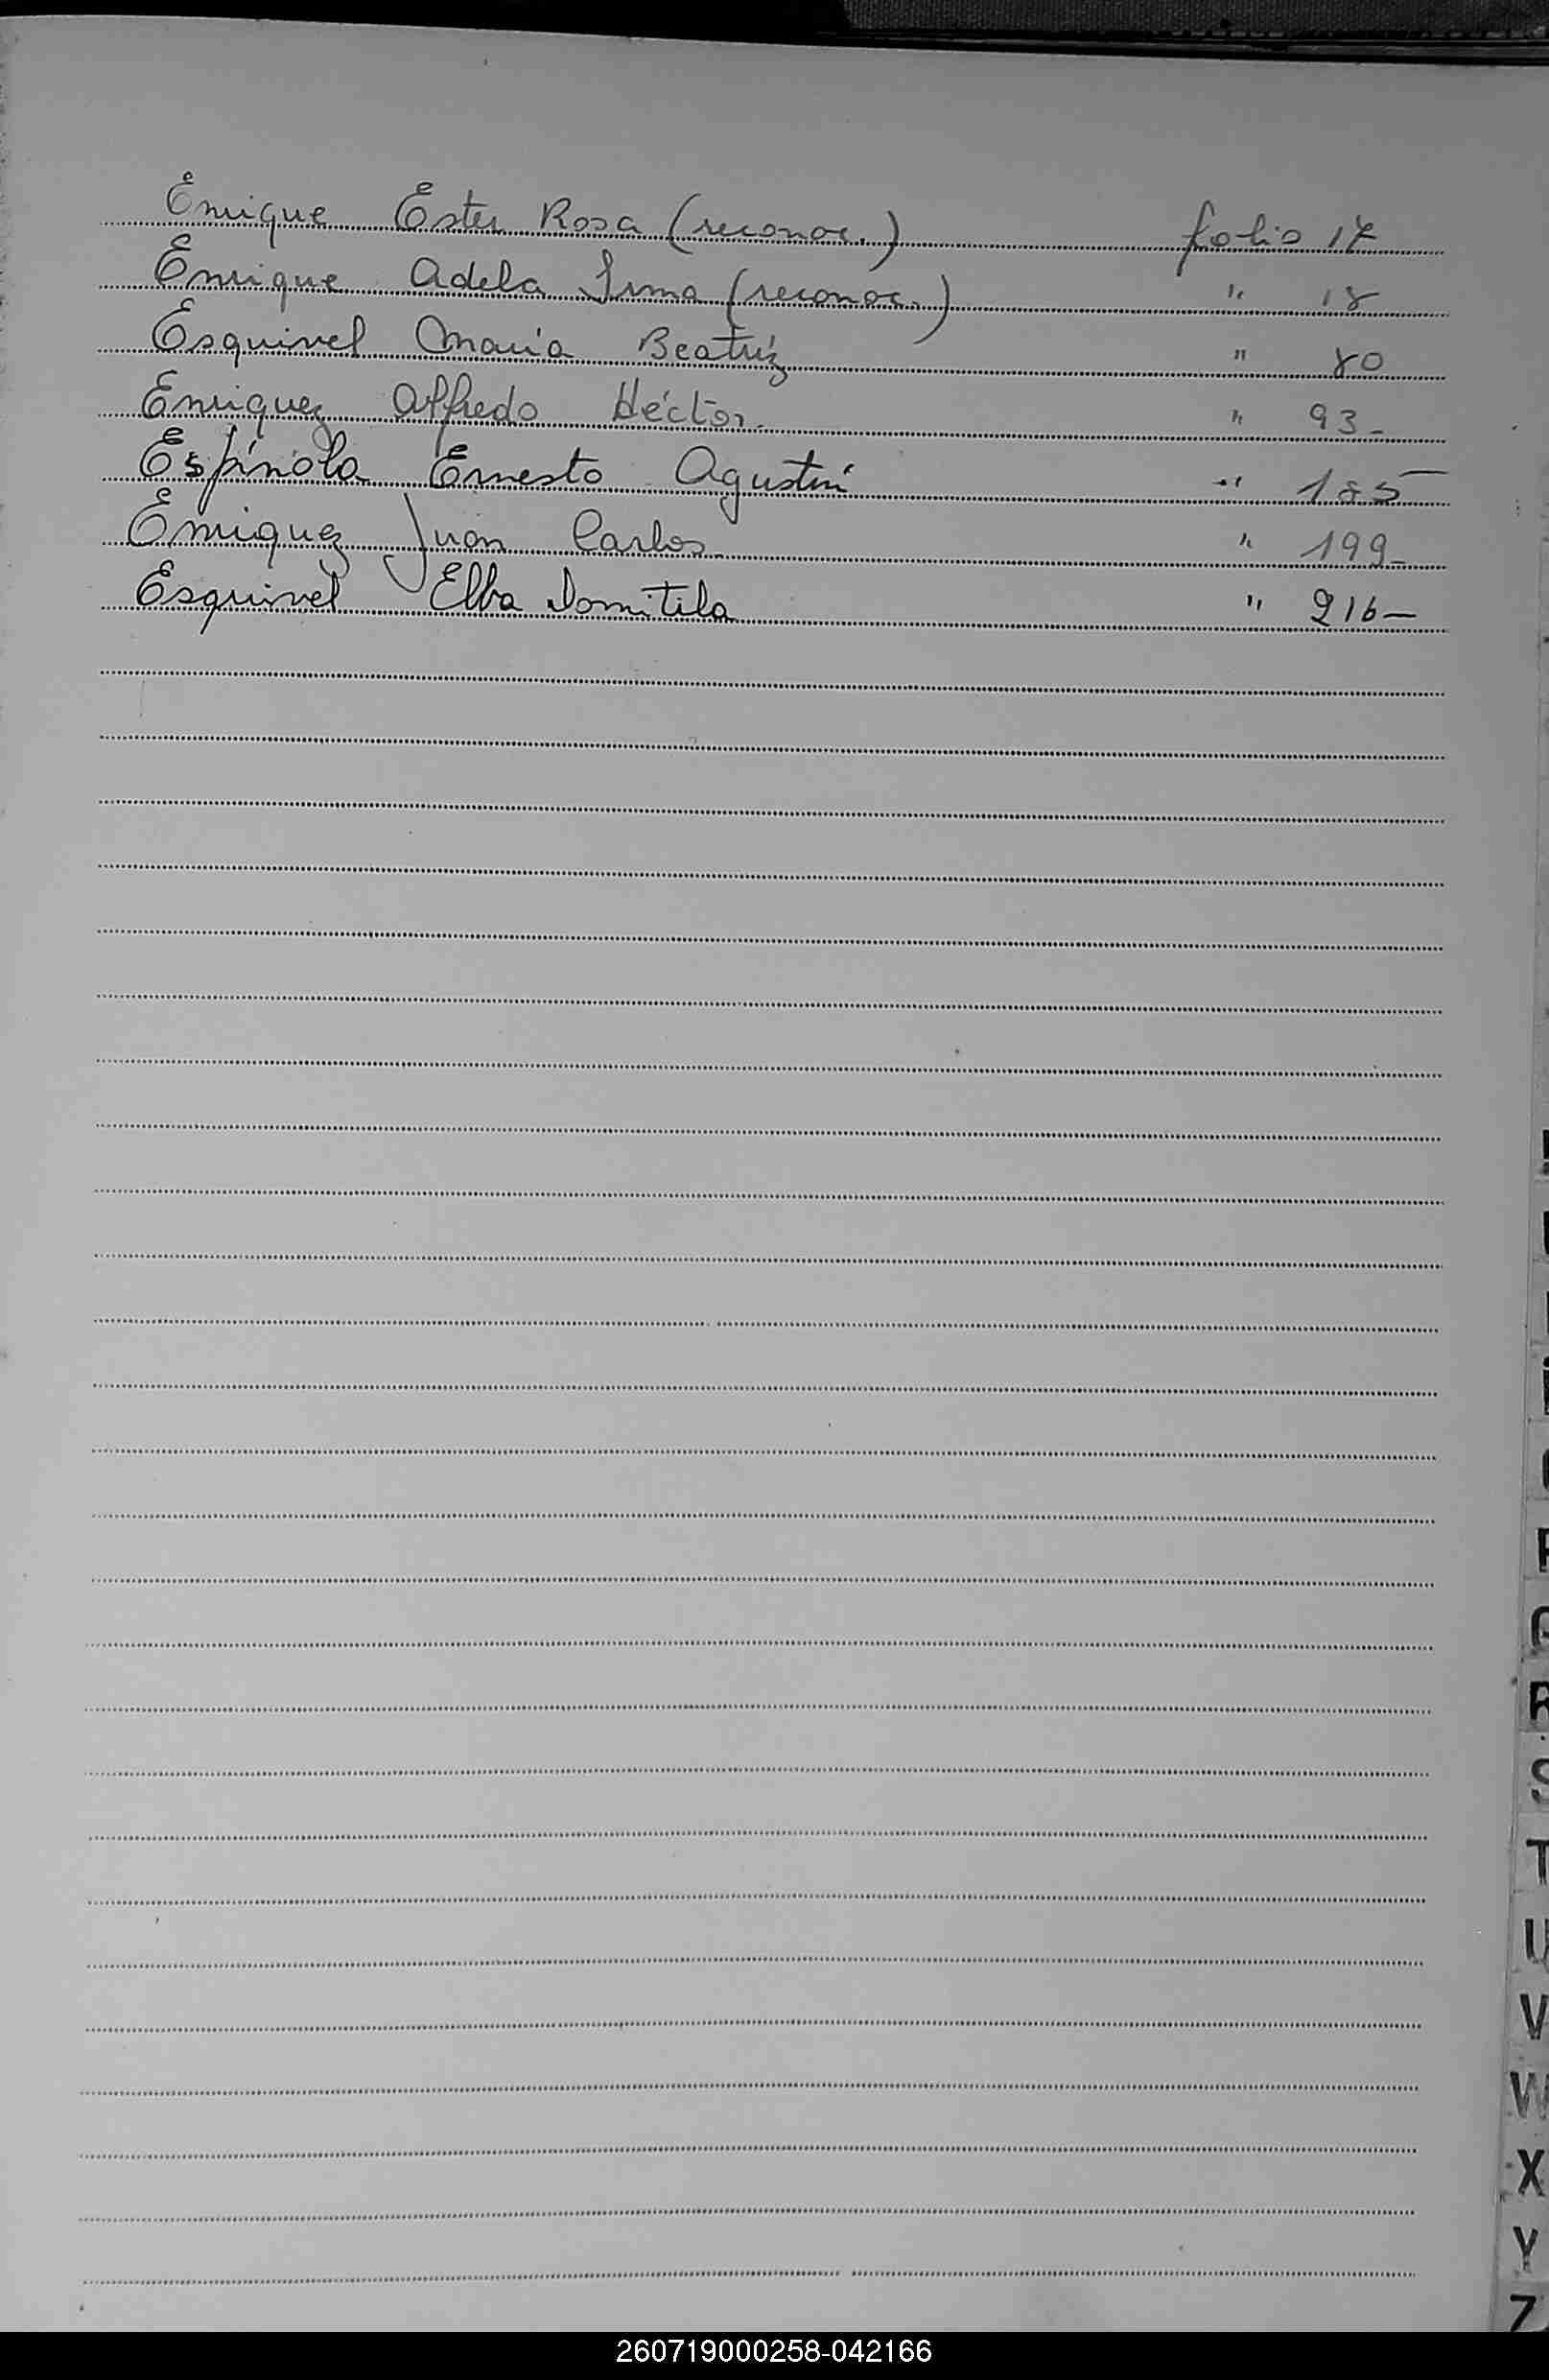 Enrique Ester Rosa (reconoc.) folio 17
Enrique Adela Irma (reconoc.) " 18
Esquivel Maria Beatriz " 80
Enriquez Alfredo Héctor. " 93-
Espínola Ernesto Agustín " 185-
Enriquez Juan Carlos. " 199-
Esquivel Elba Domitila " 216-
R
S
T
U
V
W
X
Y
Z
260719000258-042166